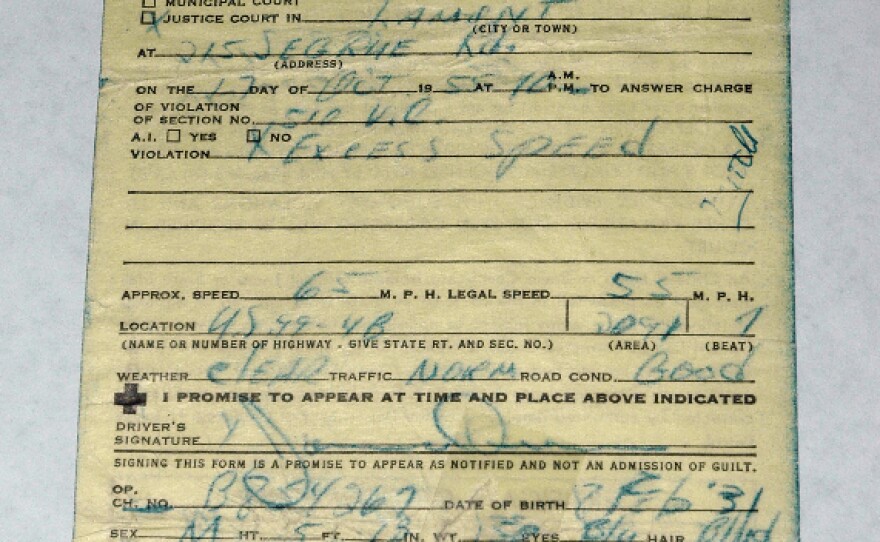 MUNICIPAL COURT
JUSTICE COURT IN LAMONT
(CITY OR TOWN)
AT 215 SEGRUE Rd.
(ADDRESS)
A.M.
ON THE 17 DAY OF OCT 1955 AT 10 P.M. TO ANSWER CHARGE
OF VIOLATION
OF SECTION NO. 510 V.C.
A.I. YES X NO
VIOLATION EXCESS SPEEd
APPROX. SPEED 65 M. P. H. LEGAL SPEED 55 M. P. H.
LOCATION U.S. 99-4B 2091 7
(NAME OR NUMBER OF HIGHWAY . GIVE STATE RT. AND SEC. NO.) (AREA) (BEAT)
WEATHER clear TRAFFIC NORM ROAD COND. Good
I PROMISE TO APPEAR AT TIME AND PLACE ABOVE INDICATED
DRIVER'S
SIGNATURE X
SIGNING THIS FORM IS A PROMISE TO APPEAR AS NOTIFIED AND NOT AN ADMISSION OF GUILT.
OP.
CH. NO. B824267 DATE OF BIRTH 8 Feb '31
SEX M HT. 5 FT. IN. WT. EYES Blu HAIR Blnd